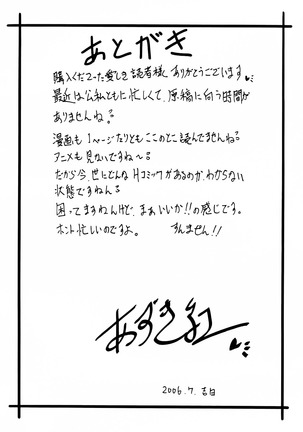 あとがき
購入くださった愛しき読者様、ありがとうございます
最近は公私ともに忙しくて、原稿に向う時間が
ありませんね。
漫画も1ページたりともここのとこ読んでませんねぇ
アニメも見ないですね〜。
だから今、世にどんなHコミックがあるのか、わからない
状態ですねん。
困ってますねんけど、まぁいいか!!の感じです。
ホント忙しいのですよ。 すんません!!
あずき紅
2006.7.吉日